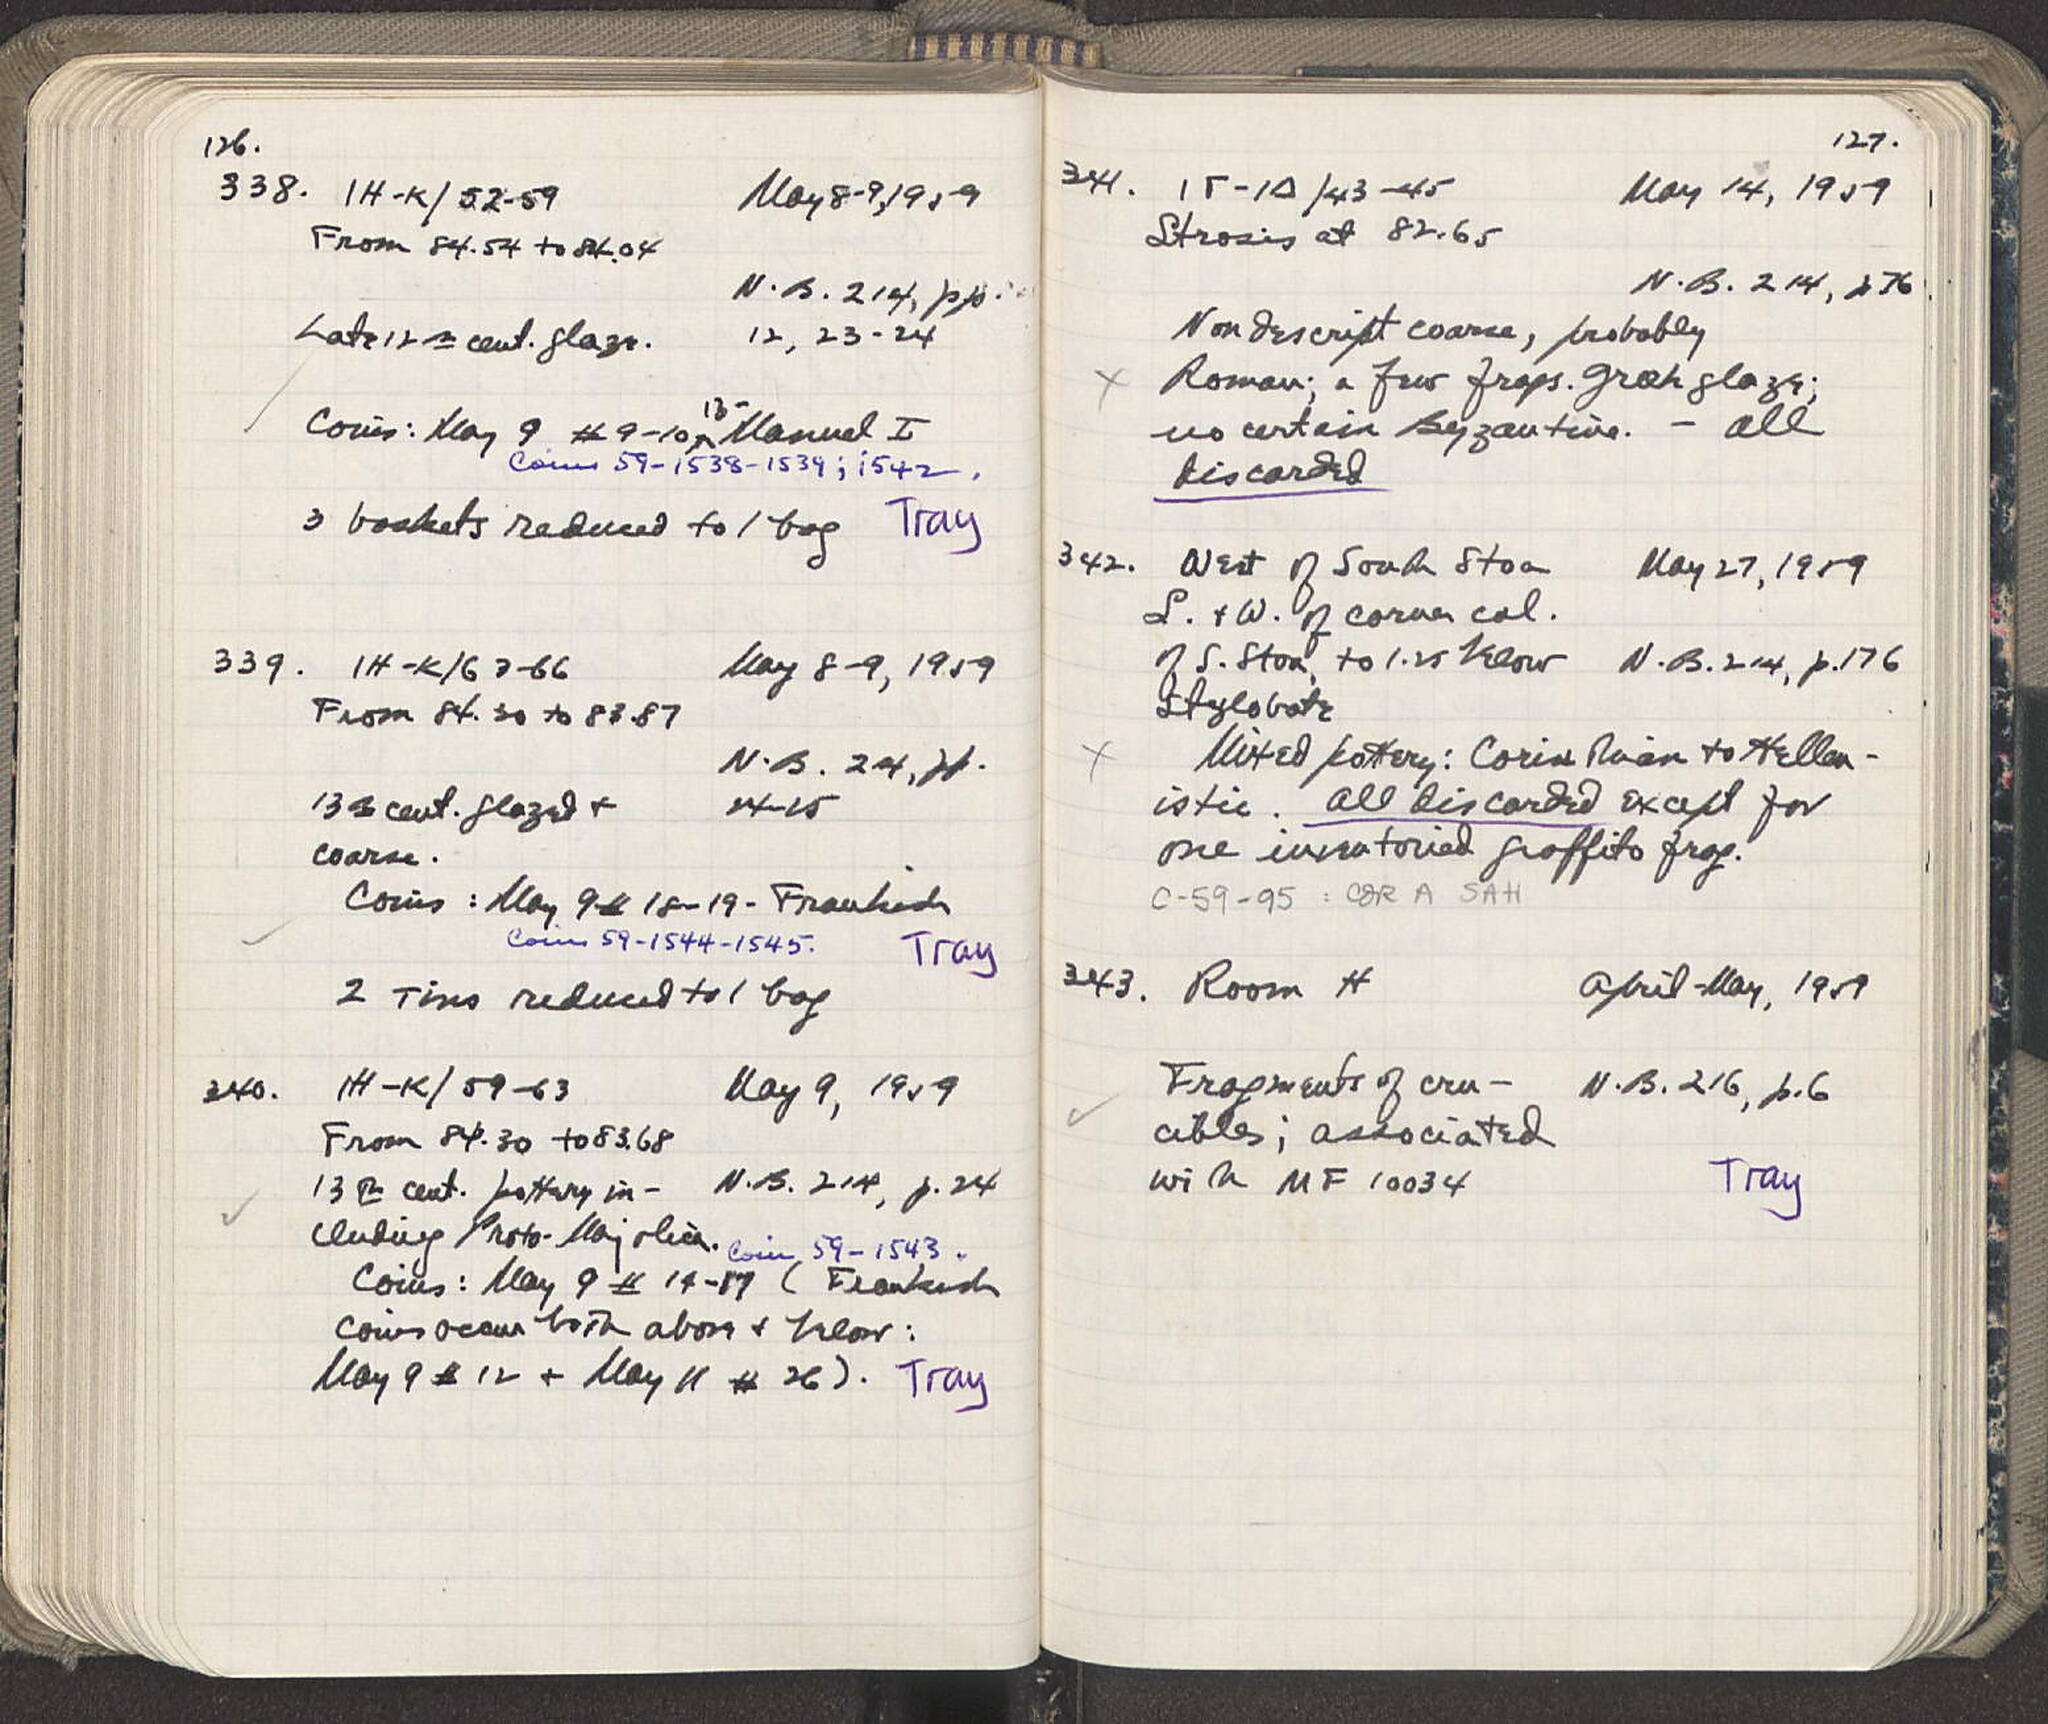 126.
338. 1H-K/52-59 May 8-9, 1959
From 84.54 to 84.04
N.B. 214, pp.
Late 12th cent. glaze. 12, 23-24
Coins: May 9 #9-10, 13- Manuel I
Coins 59-1538-1539; 1542.
3 baskets reduced to 1 bag Tray
339. 1H-K/63-66 May 8-9, 1959
From 84.30 to 83.87
N.B. 24, pp.
13th cent. glazed + 24-25
coarse.
Coins: May 9 # 18-19 - Frankish
Coins 59-1544-1545. Tray
2 Tins reduced to 1 bag
340. 1H-K/59-63 May 9, 1959
From 84.30 to 83.68
13th cent. pottery in- N.B. 214, p. 24
cluding Proto-Majolica. Coin 59-1543.
Coins: May 9 # 14-17 (Frankish
coins occur both above + below:
May 9 # 12 + May 11 # 26). Tray
127.
341. 1Γ-1Δ/43-45 May 14, 1959
Strosis at 82.65
N.B. 214, p 76
Nondescript coarse, probably
x Roman; a few frags. Greek glaze;
no certain Byzantine. - All
discarded
342. West of South Stoa May 27, 1959
S. + W. of corner col.
of S. Stoa, to 1.25 below N.B. 214, p. 176
Stylobate
x Mixed pottery: Corinthian to Hellen-
istic. All discarded except for
one inventoried graffito frag.
C-59-95 : COR A SAH
343. Room H April-May, 1959
Fragments of cru- N.B. 216, p. 6
cibles; associated
with MF 10034 Tray